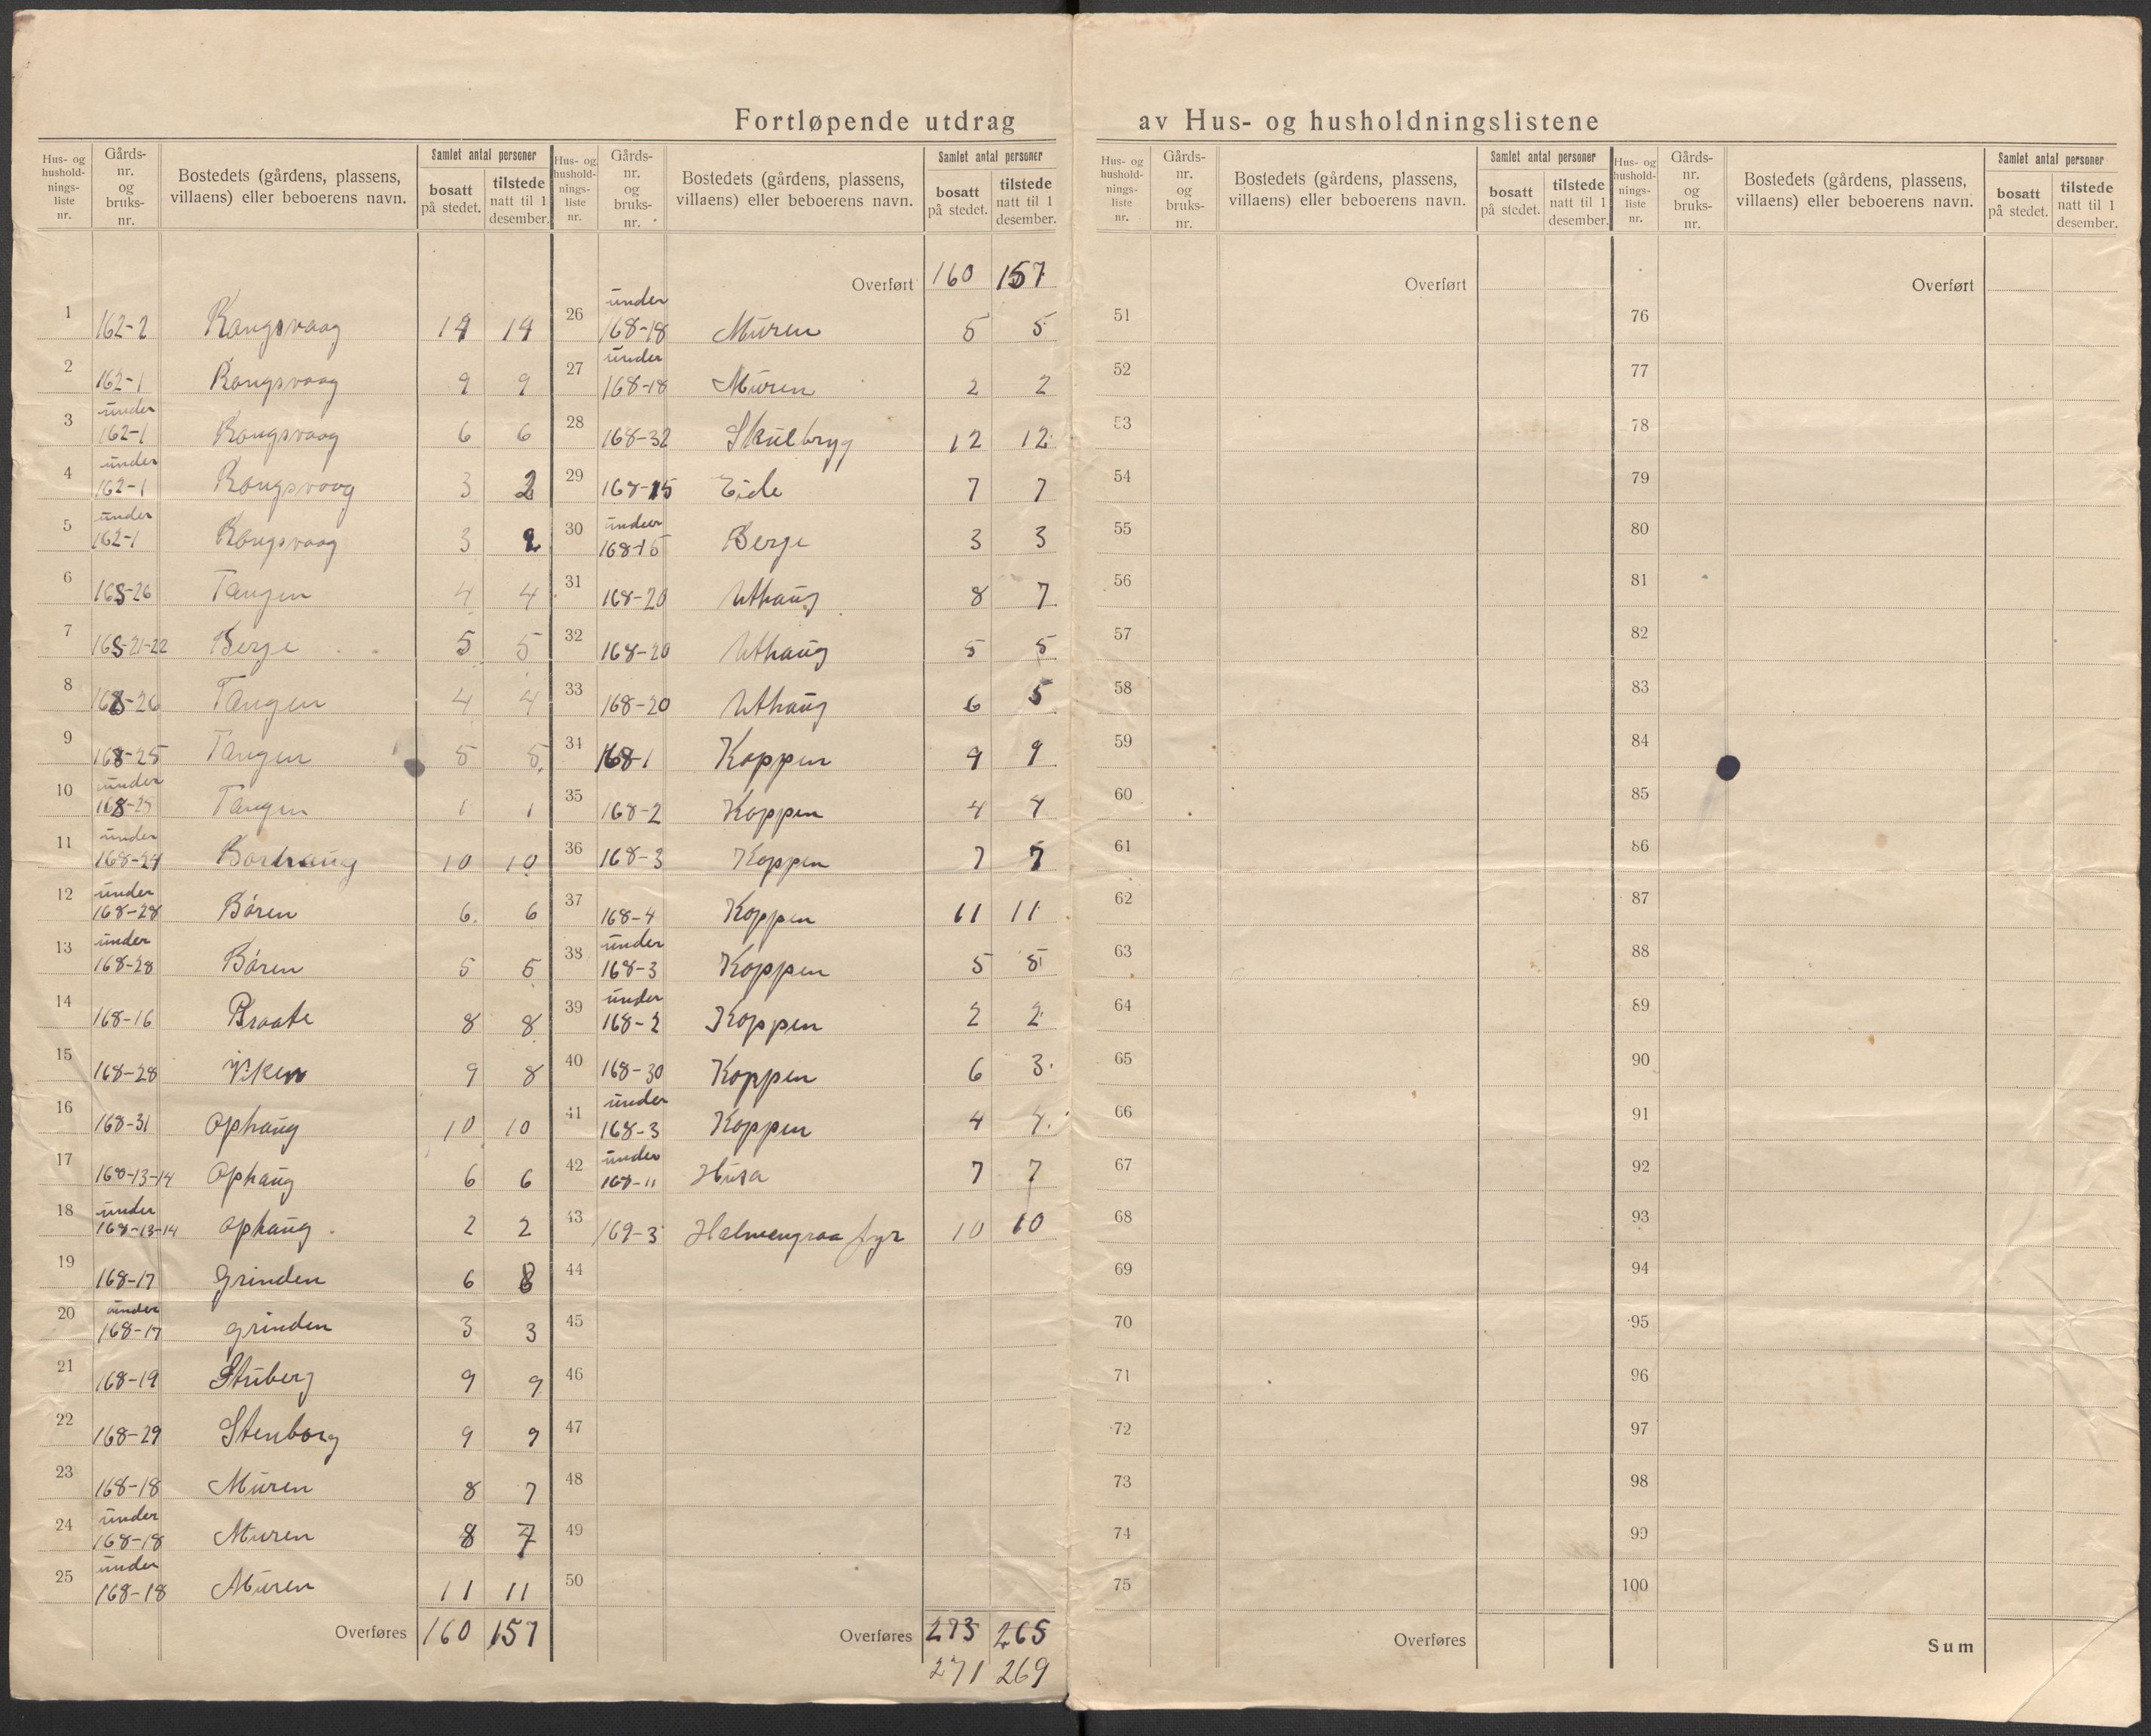 Fortløpende utdrag av Hus- og husholdningslistene
Hus- og husholdnings-liste nr. Gårds-nr. og bruks-nr. Bostedets (gårdens, plassens, villaens) eller beboerens navn. Samlet antal personer bosatt på stedet. tilstede natt til 1 desember.
1 162-2 Rangsvaag 14 14
2 162-1 Rangsvaag 9 9
3 under 162-1 Rangsvaag 6 6
4 under 162-1 Rangsvaag 3 2
5 under 162-1 Rangsvaag 3 2
6 168-26 Tangen 4 4
7 168-21-22 Berge 5 5
8 168-26 Tangen 4 4
9 168-25 Tangen 5 5
10 under 168-25 Tangen 1 1
11 under 168-24 Borhaug 10 10
12 under 168-28 Bören 6 6
13 under 168-28 Bören 5 5
14 168-16 Braate 8 8
15 168-28 Viken 9 8
16 168-31 Ophaug 10 10
17 168-13-14 Ophaug 6 6
18 under 168-13-14 Ophaug 2 2
19 168-17 Grinden 6 8
20 under 168-17 Grinden 3 3
21 168-19 Stuberg 9 9
22 168-29 Stenborg 9 9
23 168-18 Muren 8 7
24 under 168-18 Muren 8 7
25 under 168-18 Muren 11 11
Overføres 160 157
Hus- og husholdnings-liste nr. Gårds-nr. og bruks-nr. Bostedets (gårdens, plassens, villaens) eller beboerens navn. Samlet antal personer bosatt på stedet. tilstede natt til 1 desember.
Overført 160 157
26 under 168-18 Muren 5 5
27 under 168-18 Muren 2 2
28 168-32 Skulbryg 12 12
29 168-15 Eide 7 7
30 under 168-15 Berge 3 3
31 168-20 Uthaug 8 7
32 168-20 Uthaug 5 5
33 168-20 Uthaug 6 5
34 168-1 Koppen 9 9
35 168-2 Koppen 4 4
36 168-3 Koppen 7 7
37 168-4 Koppen 11 11
38 under 168-3 Koppen 5 5
39 under 168-2 Koppen 2 2
40 168-30 Koppen 6 3
41 under 168-3 Koppen 4 4
42 under 168-11 Husa 7 7
43 169-3 Holmengraa fyr 10 10
44
45
46
47
48
49
50
Overføres 273 265
271 269
Hus- og husholdnings-liste nr. Gårds-nr. og bruks-nr. Bostedets (gårdens, plassens, villaens) eller beboerens navn. Samlet antal personer bosatt på stedet. tilstede natt til 1 desember.
Overført
51
52
53
54
55
56
57
58
59
60
61
62
63
64
65
66
67
68
69
70
71
72
73
74
75
Overføres
Hus- og husholdnings-liste nr. Gårds-nr. og bruks-nr. Bostedets (gårdens, plassens, villaens) eller beboerens navn. Samlet antal personer bosatt på stedet. tilstede natt til 1 desember.
Overført
76
77
78
79
80
81
82
83
84
85
86
87
88
89
90
91
92
93
94
95
96
97
98
99
100
Sum